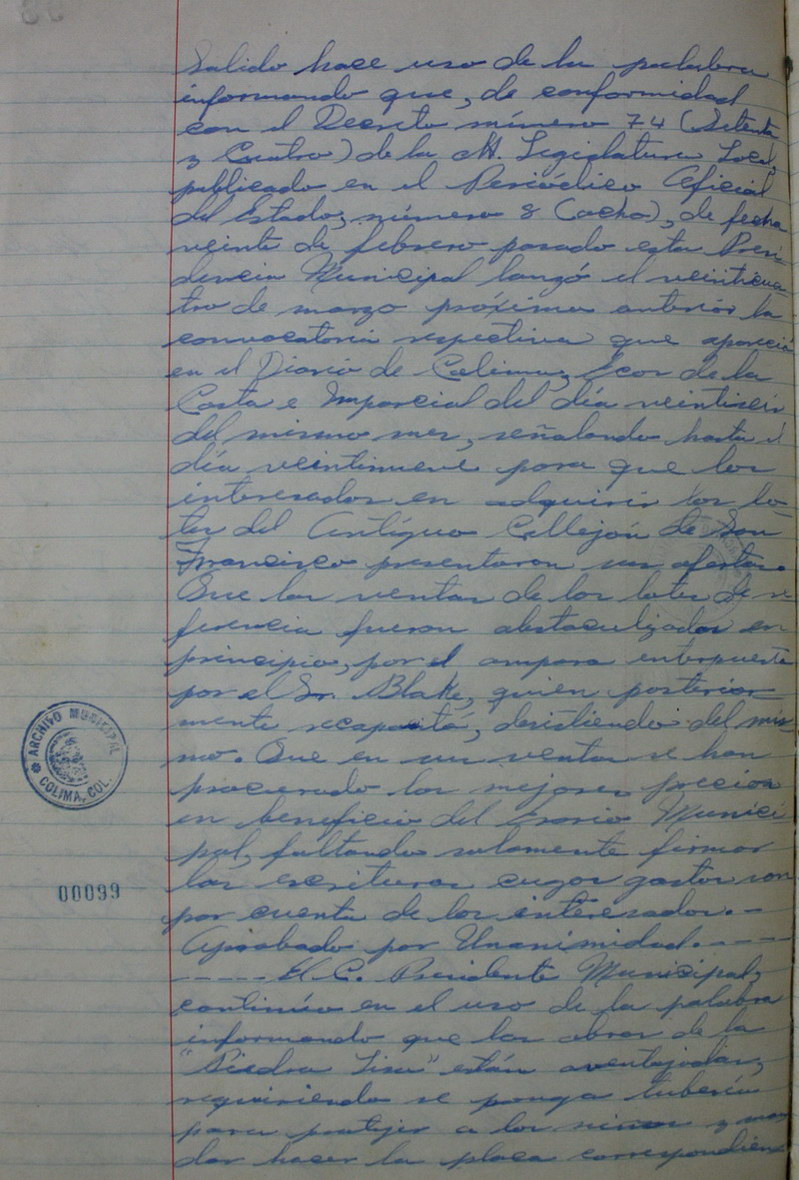 Salido hace uso de la palabra
informando que, de conformidad
con el Decreto número 74 (Setenta
y Cuatro) de la H. Legislatura Local,
publicado en el Periódico Oficial
del Estado, número 8 (ocho), de fecha
veinte de febrero pasado esta Presi-
dencia Municipal lanzó el veinticua-
tro de marzo próximo anterior la
convocatoria respectiva que apareció
en el Diario de Colima, Ecos de la
Costa e Imparcial del día veintiseis
del mismo mes, señalando hasta el
día veintinueve para que los
interesados en adquirir los lo-
tes del Antíguo Callejón de San
Francisco presentaran sus ofertas.
Que las ventas de los lotes de re-
ferencia fueron obstaculizadas en
principio, por el amparo interpuesto
por el Sr. Blake, quién posterior-
mente recapacitó, desistiendo del mis-
mo. Que en sus ventas se han
procurado los mejores precios
en beneficio del Erario Munici-
pal, faltando solamente firmar
las escrituras cuyos gastos son
por cuenta de los interesados.-
Aprobado por Unanimidad.----
-----El C. Presidente Municipal,
continúo en el uso de la palabra
informando que las obras de la
"Piedra Lisa" están aventajadas,
requiriendo se ponga tubería
para protejer a los niños y man-
dar hacer la placa correspondien
ARCHIVO MUNICIPAL
COLIMA, COL.
00099